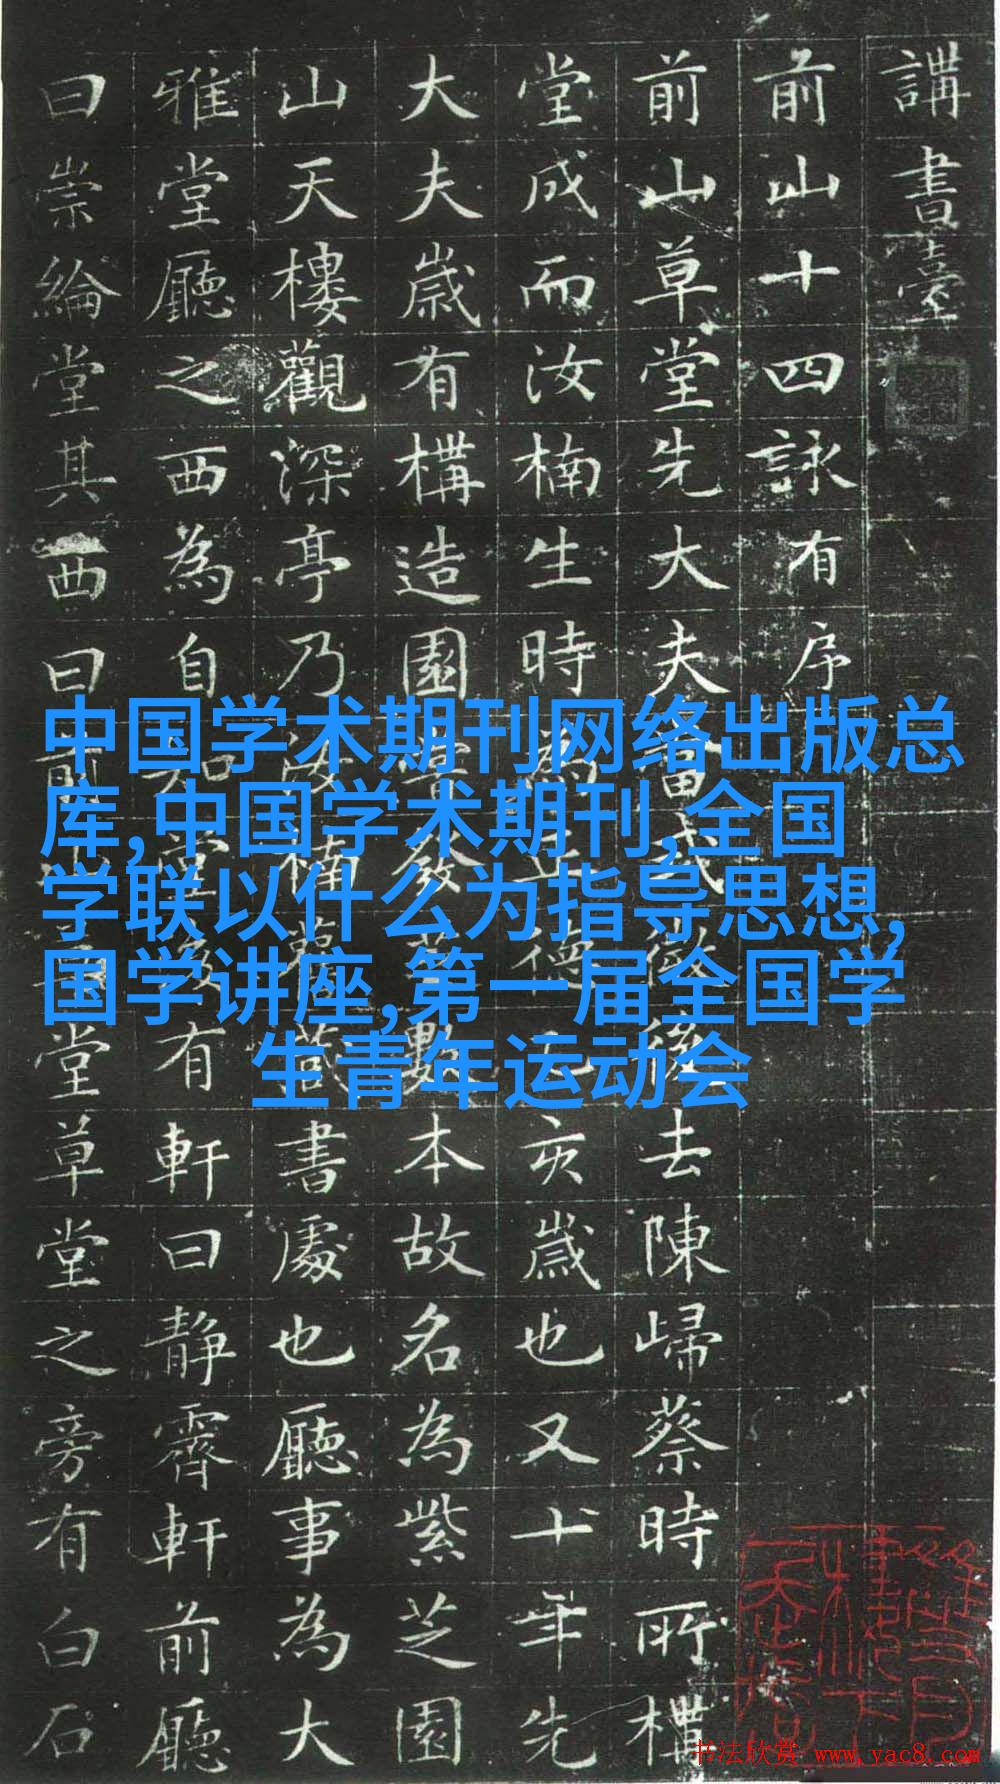 講書臺
前山十四詠有序
前山草堂先大夫後去陳歸蔡時所構
堂成而汝楠生時亥歲也又十年先
大夫歲有構造園數本故名為紫芝園
山天樓觀深亭乃汝楠書處也廳事為大
雅堂廳之西為自知堂後有軒曰静霽軒前廳
曰崇綸堂其西曰前山草堂草堂之旁有白石
中国学术期刊网络出版总
库,中国学术期刊,全国
学联以什么为指导思想,
国学讲座,第一届全国学
生青年运动会
书法欣赏 www.yac8.com